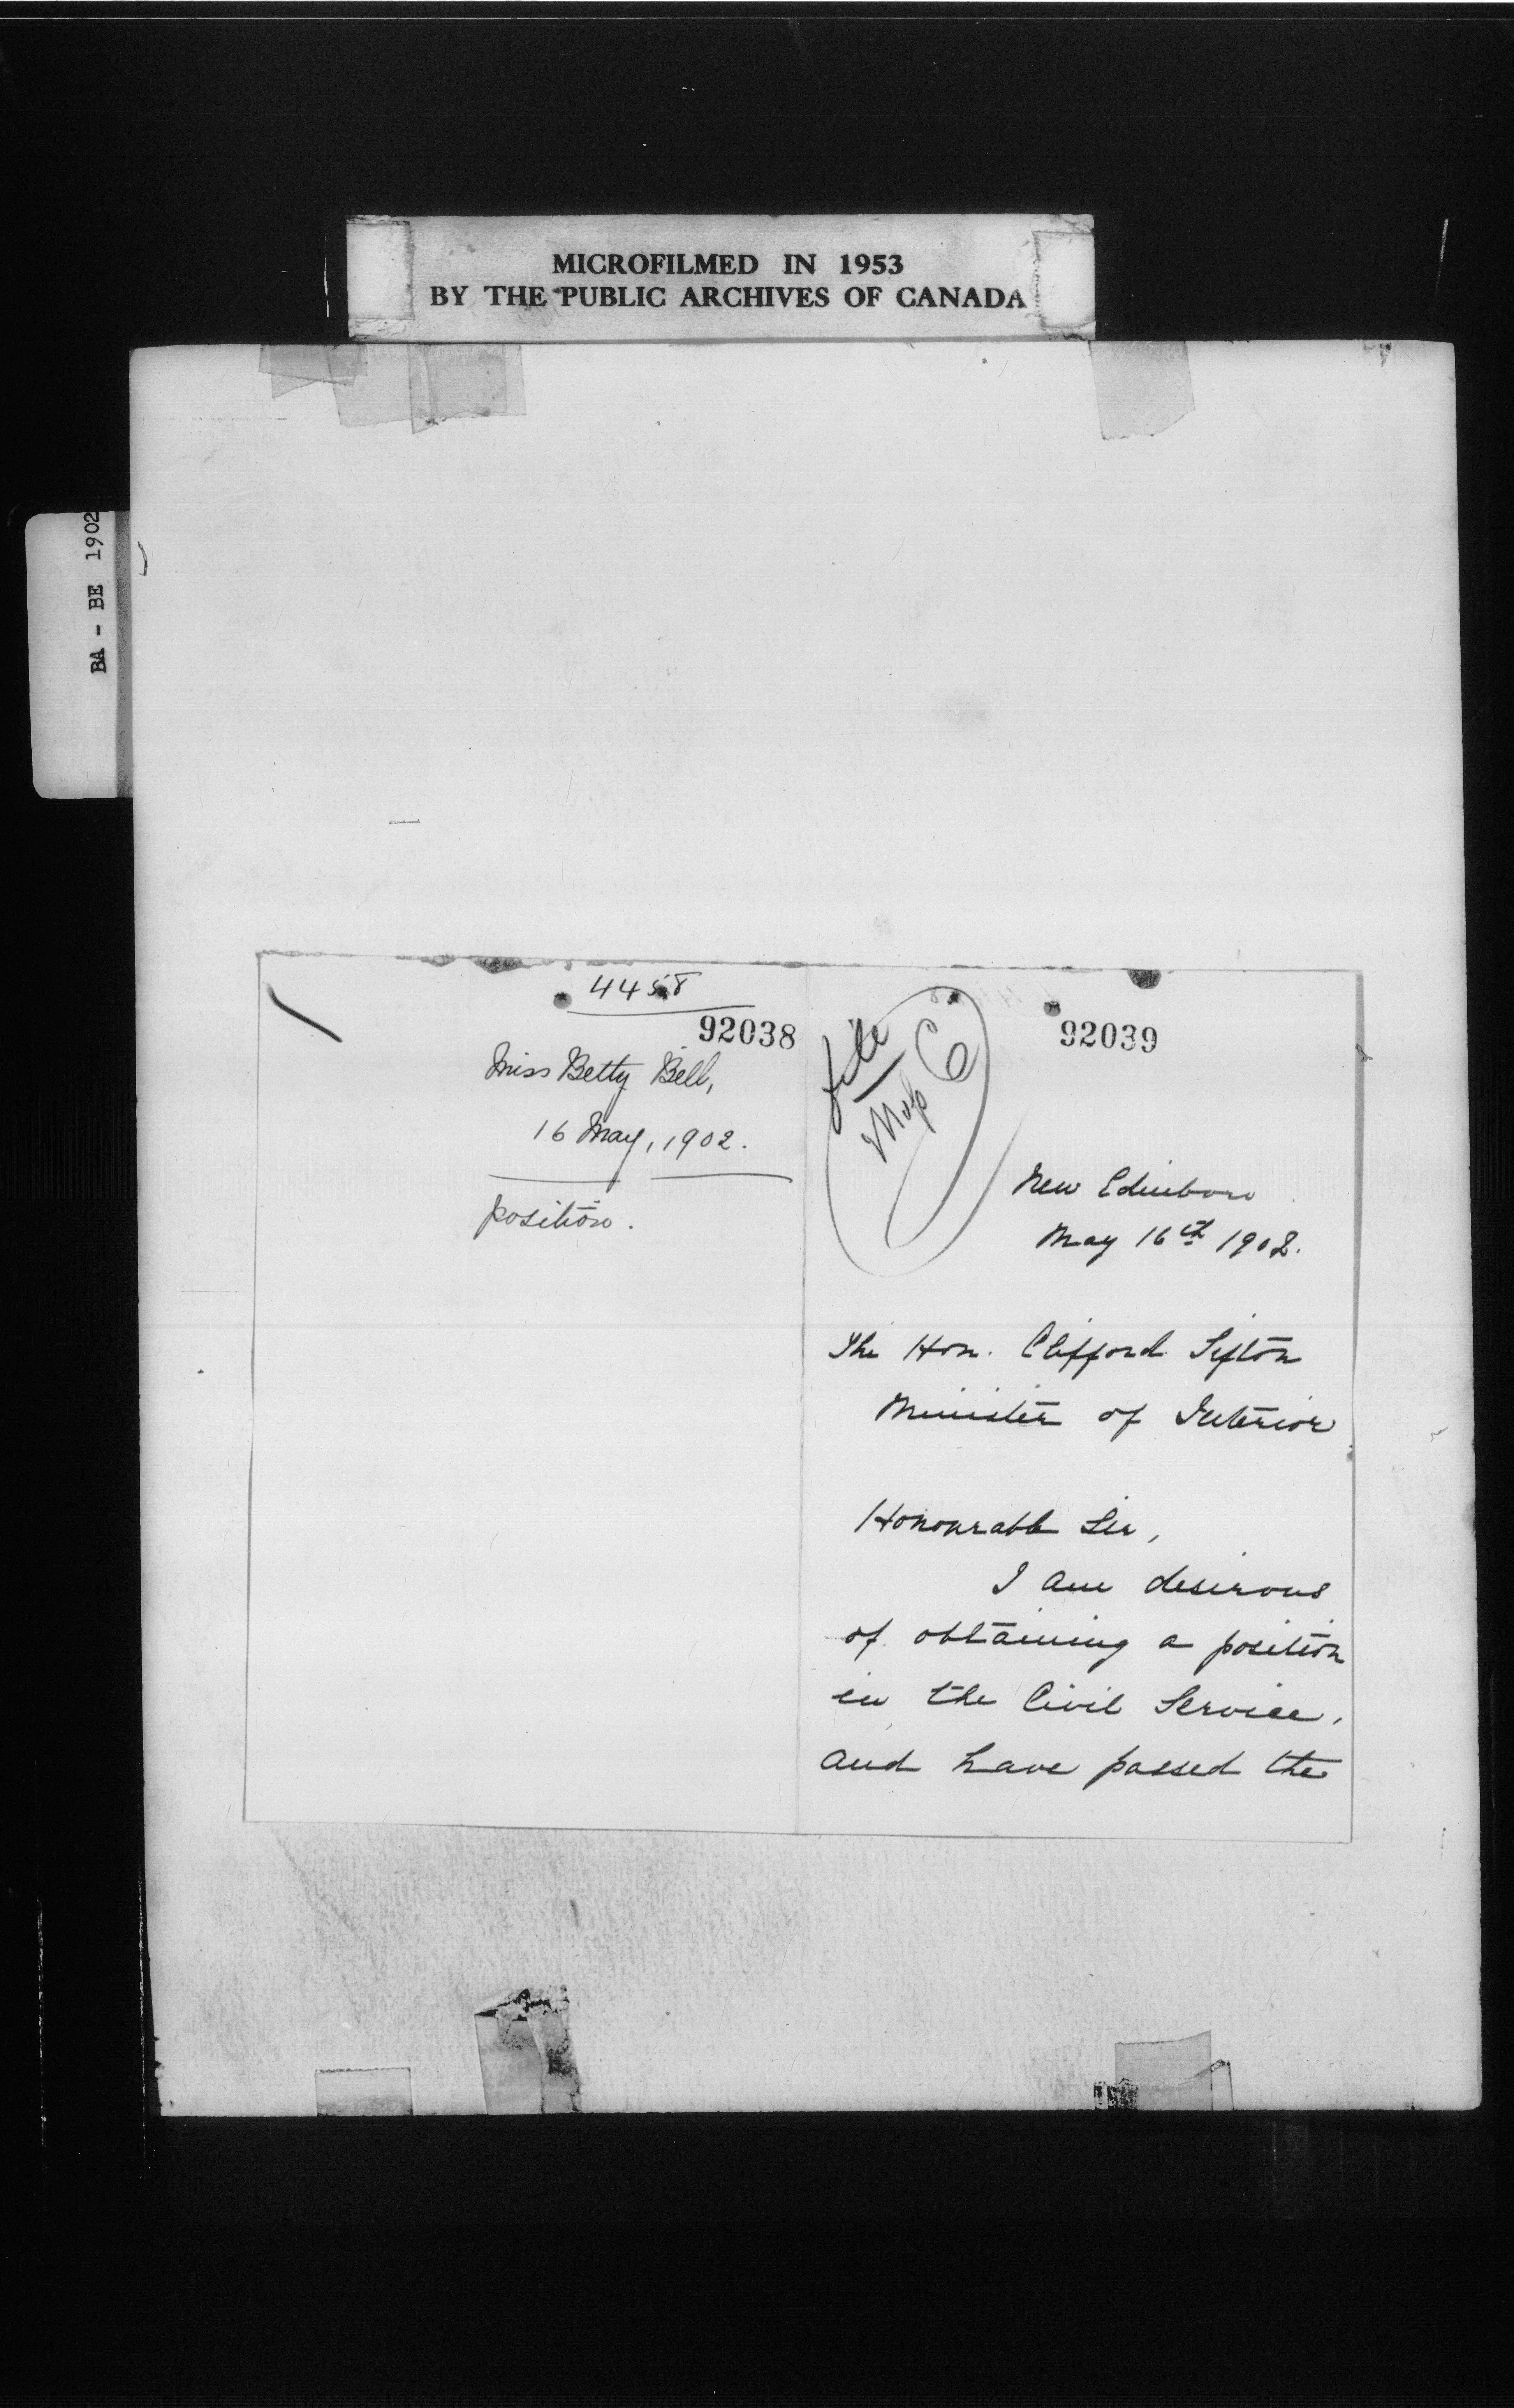 MICROFILMED IN 1953
BY THE PUBLIC ARCHIVES OF CANADA
BA - BE 1902
4458
92038
Miss Betty Bell,
16 May, 1902.
position.
file
92039
New Edinboro
May 16th 1902.
The Hon. Clifford Sifton
Minister of Interior
Honourable Sir,
I am desirous
of obtaining a position
in the Civil Service,
and have passed the